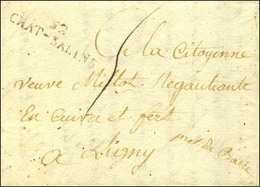 52
CHAT-SALINS
5
A la Citoyenne
veuve Millot Negautiante
En Cuivre et fert
a Ligny